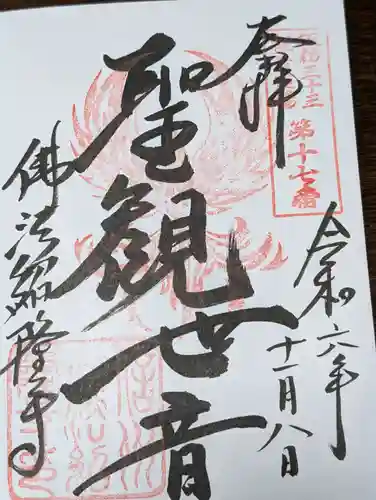 奉拝
第十七番
聖観世音
令和六年
十一月八日
佛法紹隆寺